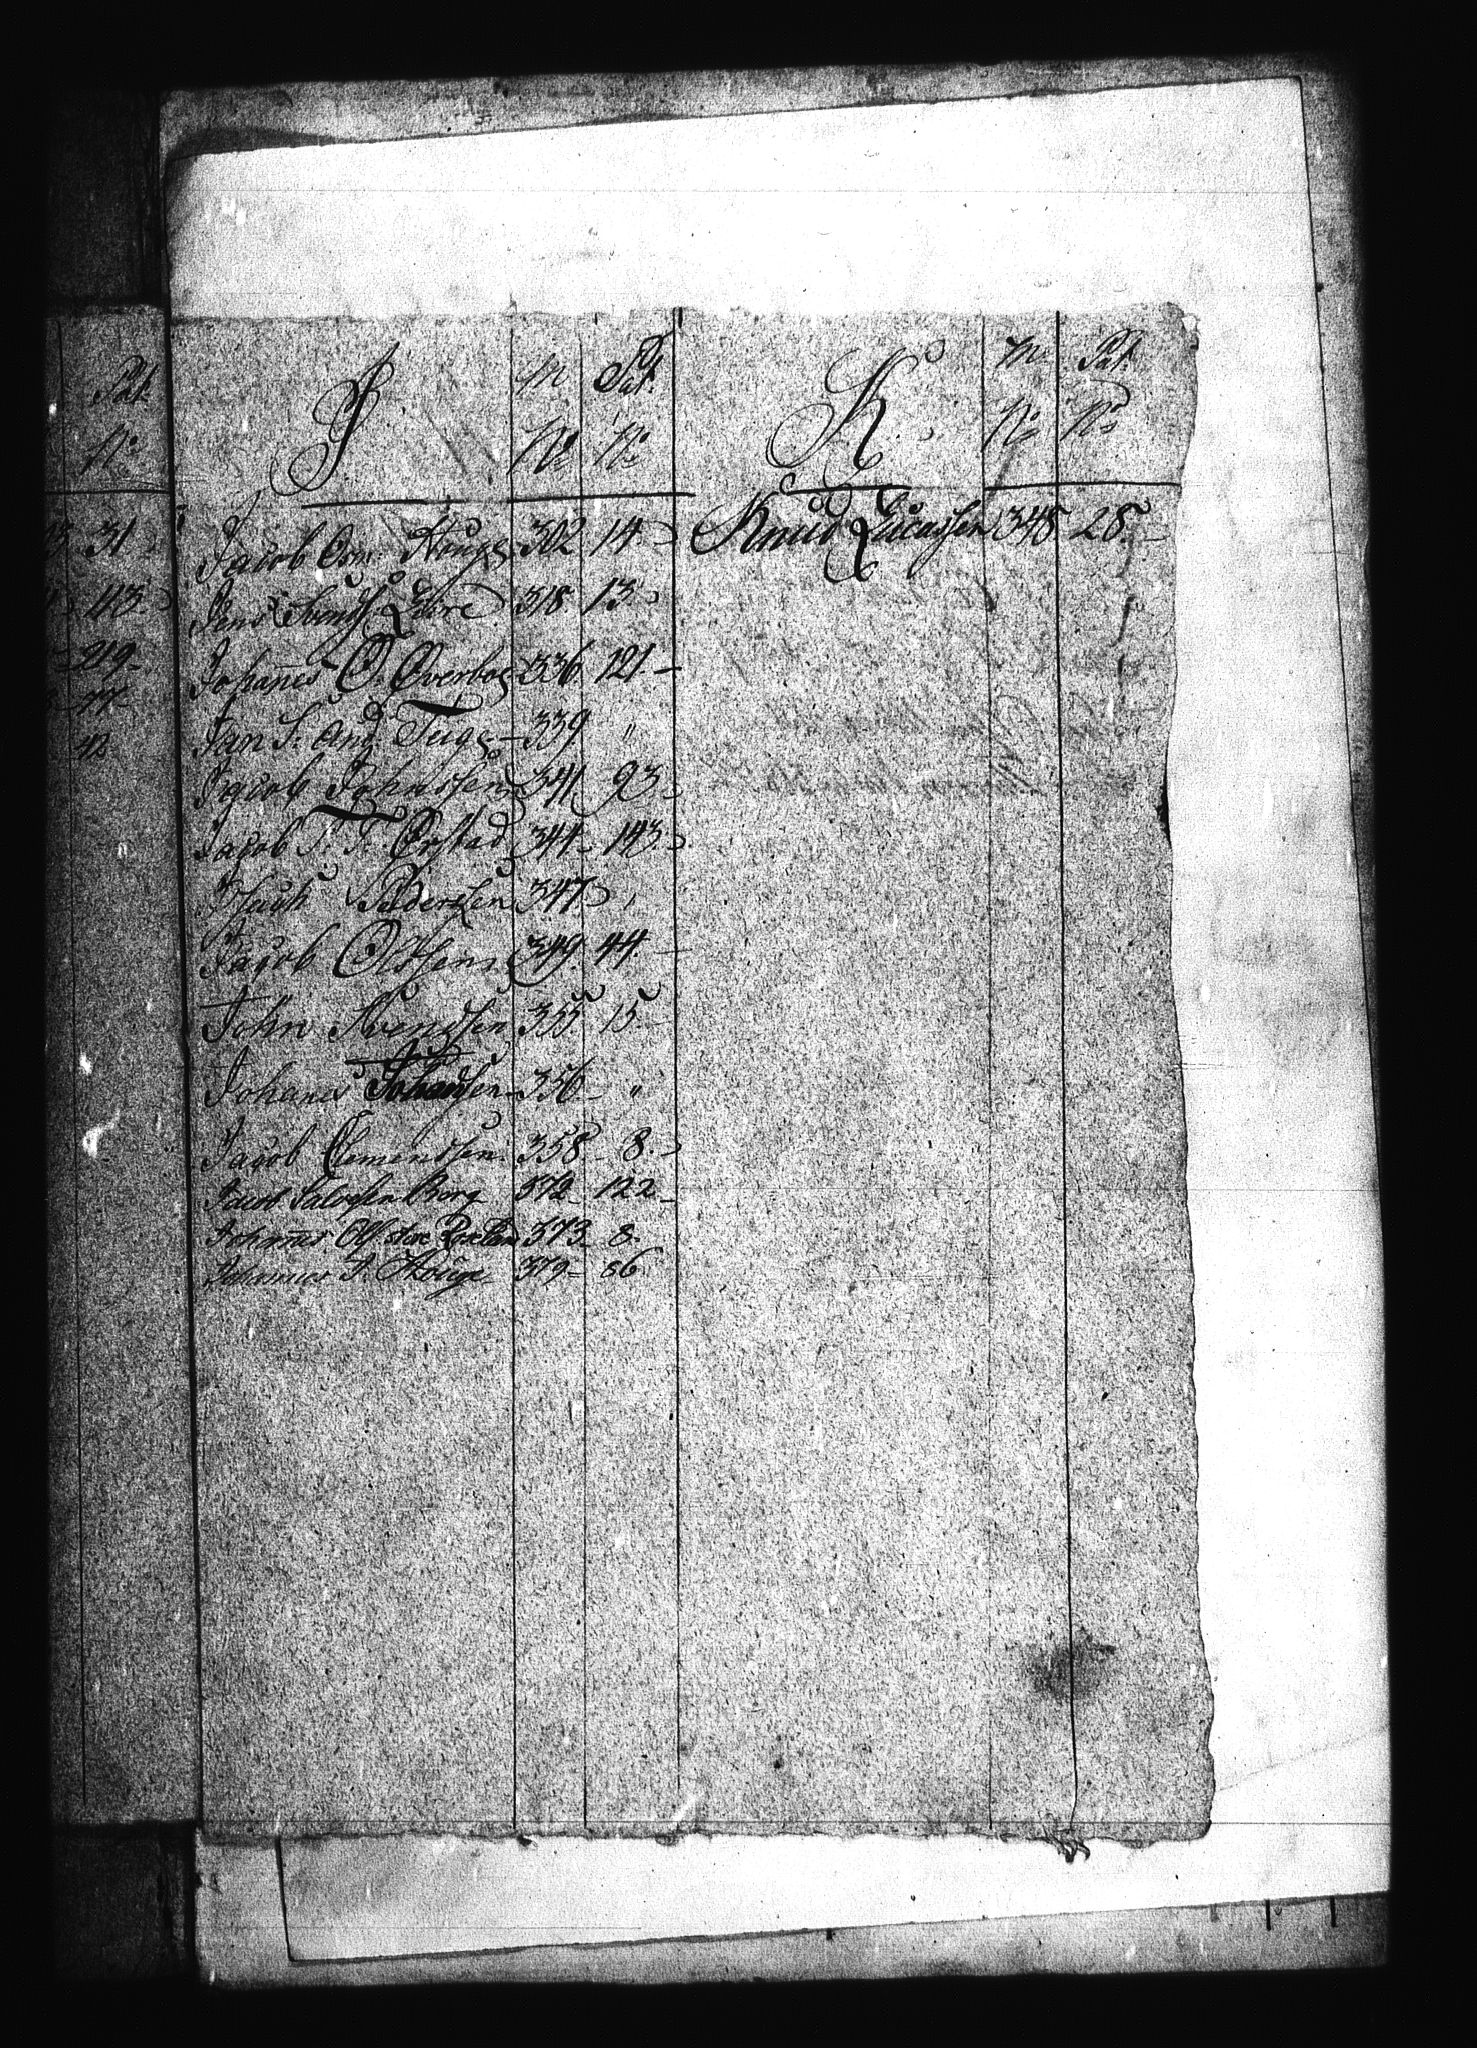 Pat.
No
31
43.
219.
77
42
J
M
No
Pat.
No
Jacob Osm: Houge 302 14.
Jens Svends. Lohre 318 13.
Johannes O. Overbog 336 121.
Jan S: And: Tuge 339 "
Jacob Johnssen 341 93
Jacob T. T. Ørstad 344 143
Isach Pedersen 347
Jacob Oldssen 349. 44.
John Svendsen 355 15.
Johanes Johansen 356 "
Jacob Clemendsen 358 8.
Jacob Salvesen Borg 372 122
Johannes Olss 373 8.
Johannes T. Houge 379 86
K.
M
No
Pat.
No
Knud Lucassen 348 28.